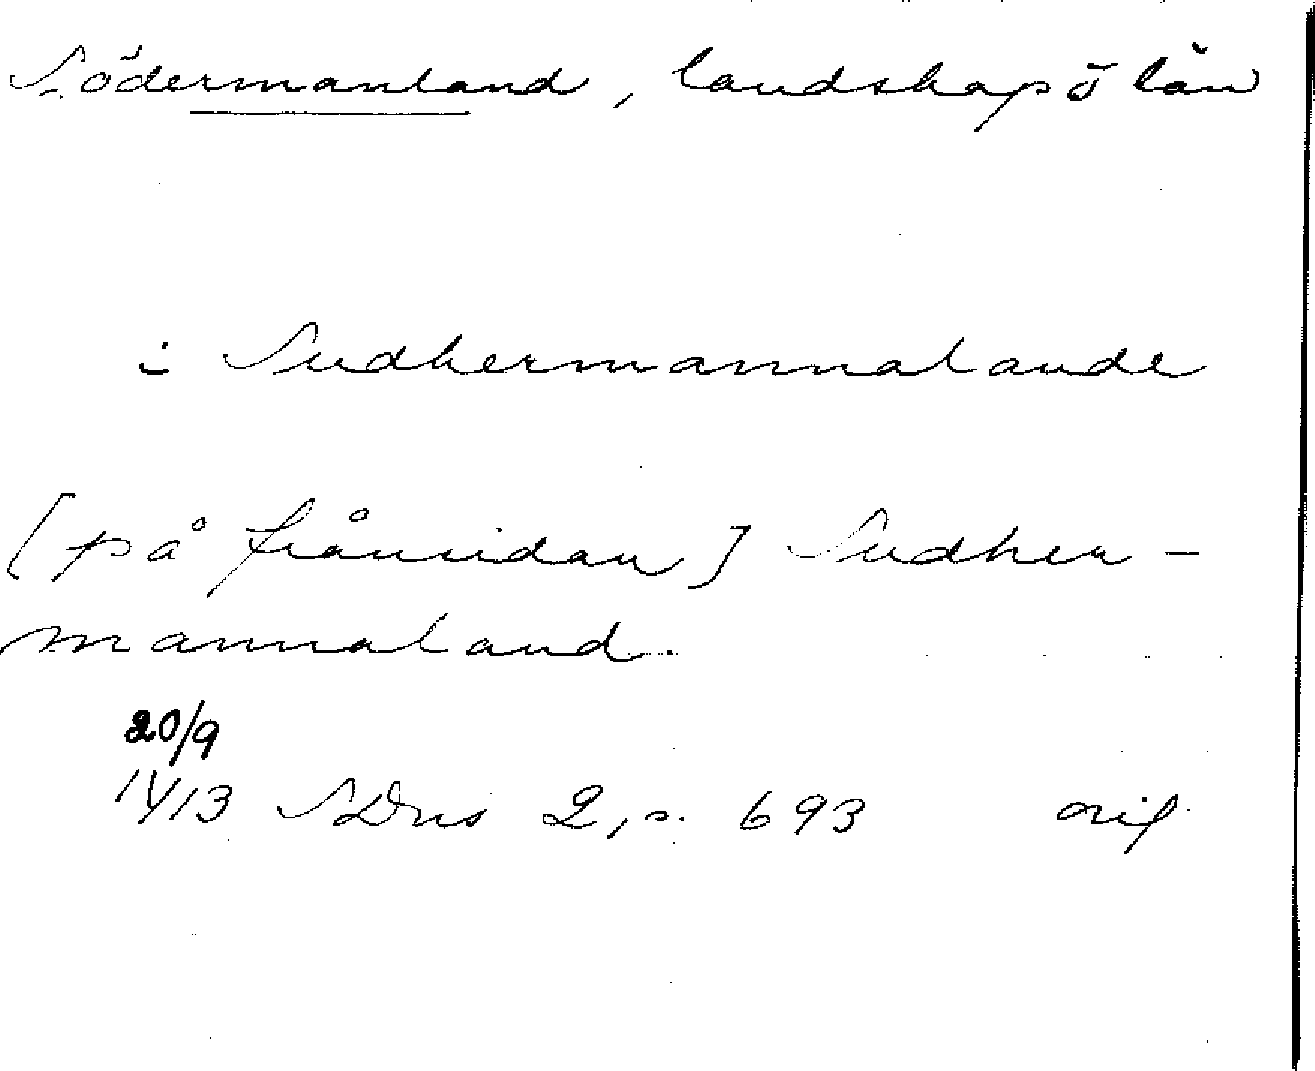 Södermanland, landskap ō län
i Sudhermannalande
[på frånsidan] Sudher-
mannaland.
20/9
1413 SDns 2, s. 693 orig